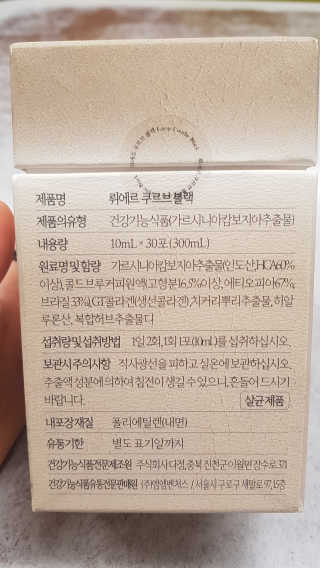 제품명 뤼에르 쿠르브 블랙
제품의유형 건강기능식품(가르시니아캄보지아추출물)
내용량 10mL × 30포 (300mL)
원료명 및 함량 가르시니아캄보지아추출물(인도산,HCA60%
이상), 콜드브루커피원액(고형분16.5%이상, 에티오피아67%,
브라질33%), GT콜라겐(생선콜라겐), 치커리뿌리추출물, 히알
루론산, 복합허브추출물디
섭취량 및 섭취방법 1일 2회, 1회 1포(10mL)를 섭취하십시오.
보관시주의사항 직사광선을 피하고 실온에 보관하십시오.
추출액 성분에 의하여 침전이 생길 수 있으니, 흔들어 드시기
바랍니다. 살균제품
내포장재질 폴리에틸렌(내면)
유통기한 별도 표기일까지
건강기능식품전문제조원 주식회사 다정, 충북 진천군 이월면 장수로
건강기능식품유통전문판매원 (주)엠엠벤처스 / 서울시 구로구 새말로 97,